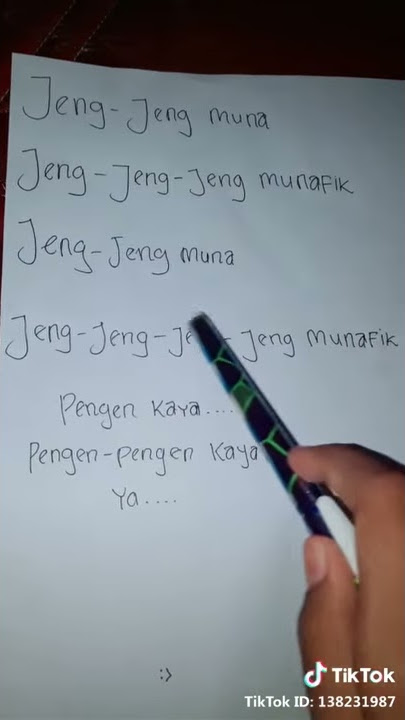 Jeng-Jeng muna
Jeng-Jeng-Jeng munafik
Jeng-Jeng muna
Jeng-Jeng-Je - Jeng munafik
Pengen kaya....
Pengen-pengen kaya
Ya....
:>
TikTok
TikTok ID: 138231987